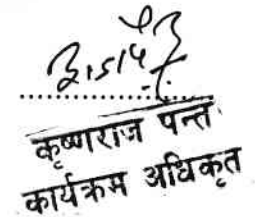 कृष्णराज पन्त
कार्यक्रम अधिकृत